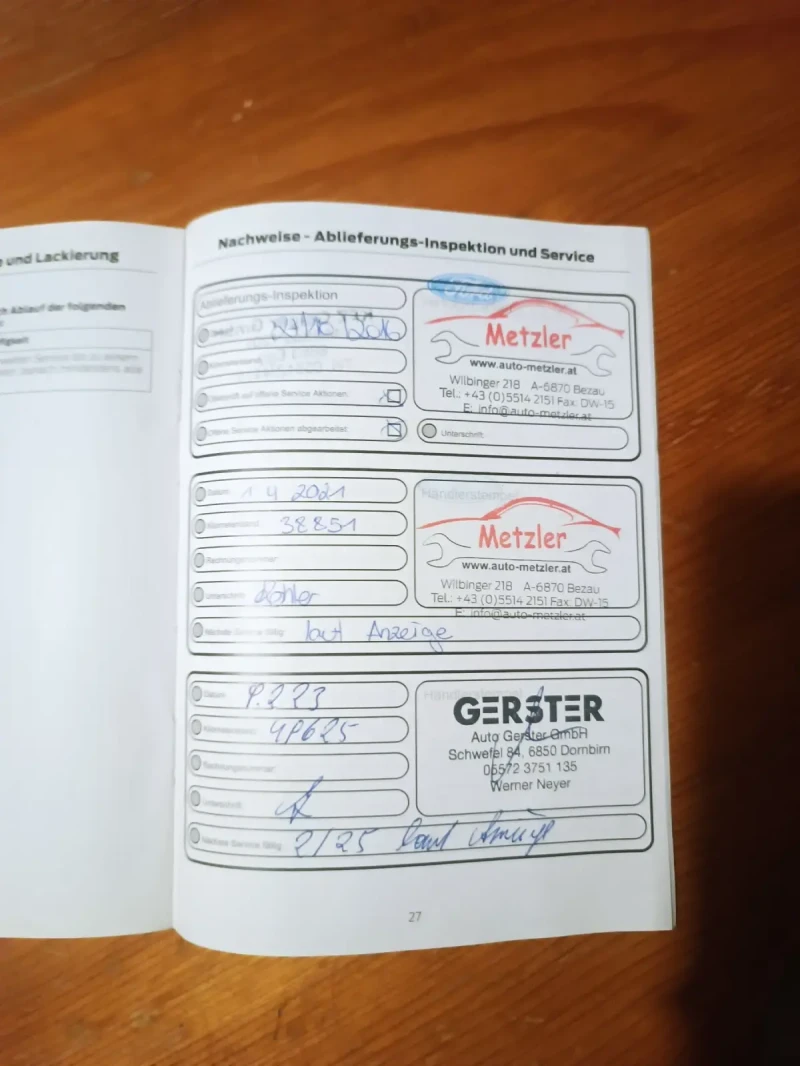 und Lackierung
Ablauf der folgenden
Nachweise - Ablieferungs-Inspektion und Service
Ablieferungs-Inspektion
Metzler
www.auto-metzler.at
Wilbinger 218 A-6870 Bezau
Tel.: +43 (0)5514 2151 Fax: DW-15
E: info@auto-metzler.at
auf offene Service Aktionen
Offene Service Aktionen abgearbeitet
Unterschrift
Datum 1 4 2021
Kilometerstand 38851
Rechnungsnummer
Unterschrift
Nächster Service fällig laut Anzeige
Händlerstempel
Metzler
www.auto-metzler.at
Wilbinger 218 A-6870 Bezau
Tel.: +43 (0)5514 2151 Fax: DW-15
E: info@auto-metzler.at
Datum
Kilometerstand
Rechnungsnummer
Unterschrift
Nächster Service fällig 2/25 laut
Händlerstempel
GERSTER
Auto Gerster GmbH
Schwefel 84, 6850 Dornbirn
05572 3751 135
Werner Neyer
27